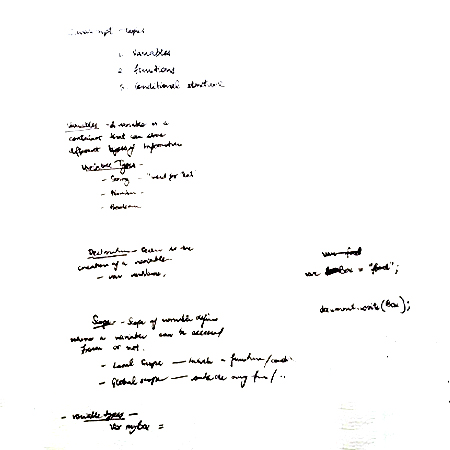 1. Variables
2. functions
3. Conditional
Variables - A variable is a
container that can store
different types of information
Variable Types -
- String - "
- Number -
- Boolean
Declaration - is the
creation of a variable.
- var
var food
var Box = "food";
document.write(Box);
Scope - Scope of variable defines
where a variable can be accessed
from or not.
- Local Scope — inside a function/
- Global scope — outside any fun/..
- variable types -
var myBox =